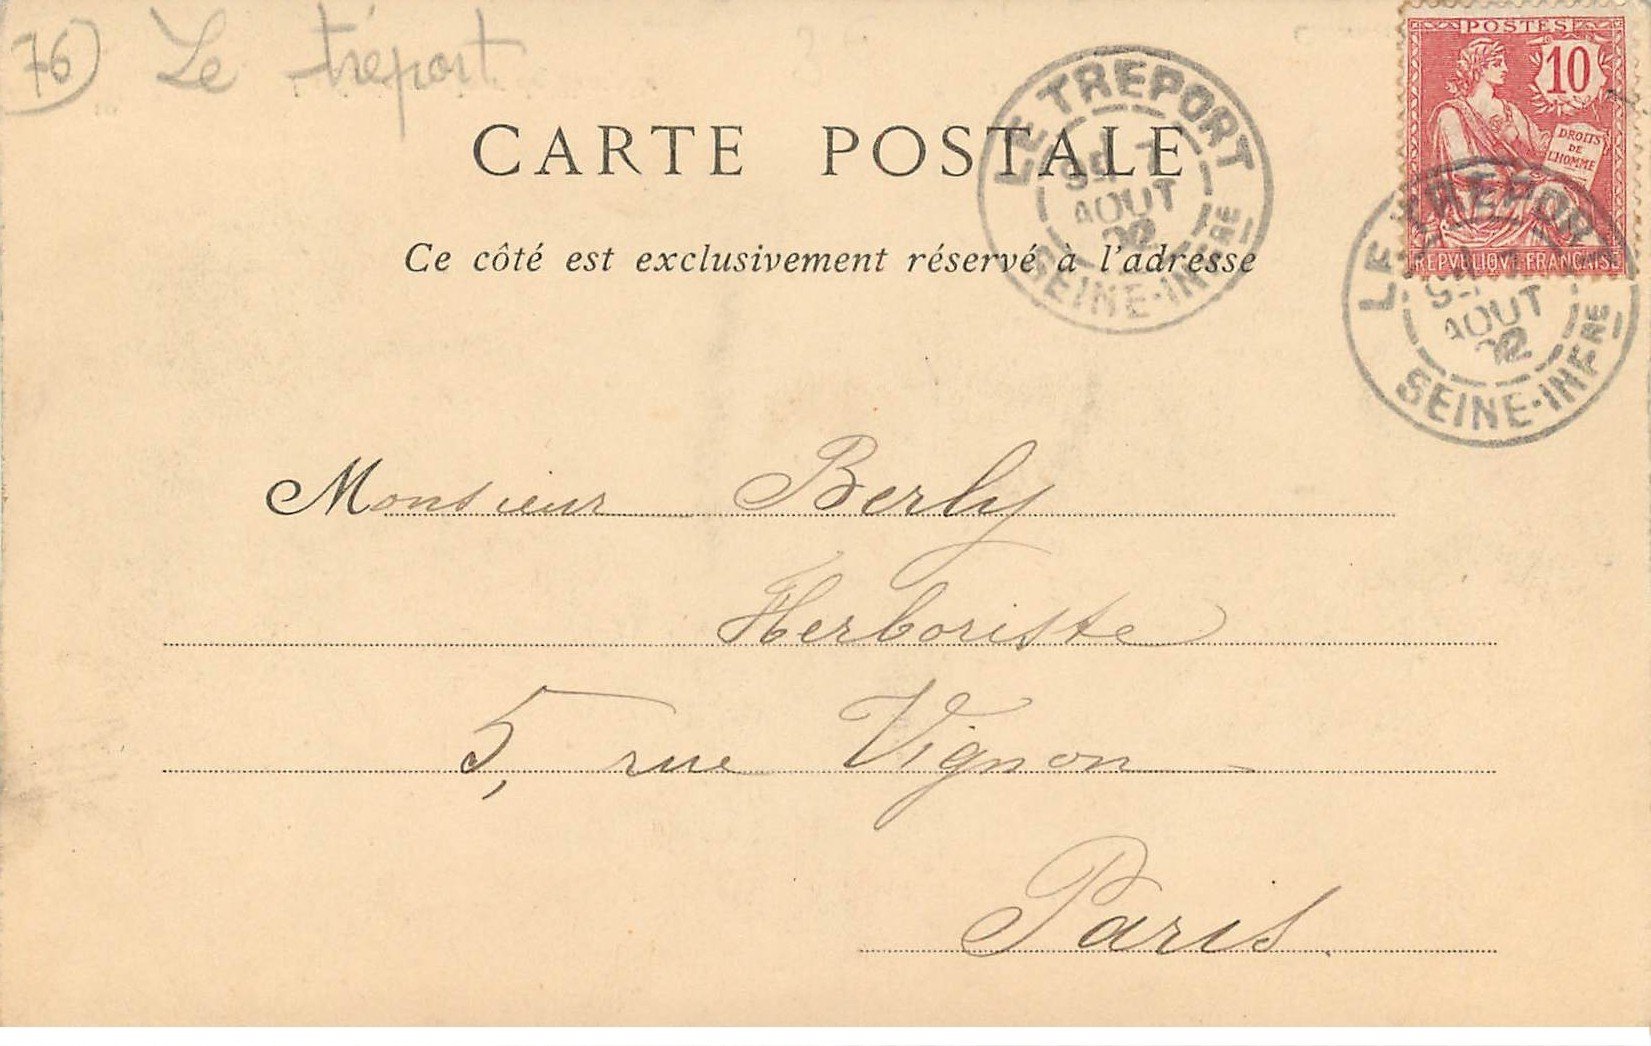 76 Le tréport
POSTES
10
DROITS
DE
L'HOMME
REPVBLIQVE FRANÇAISE
CARTE POSTALE
LE TREPORT
AOUT
02
SEINE-INFRE
LE TREPORT
AOUT
02
SEINE-INFRE
Ce côté est exclusivement réservé à l'adresse
Monsieur Berly
Herboriste
5, rue Vignon
Paris